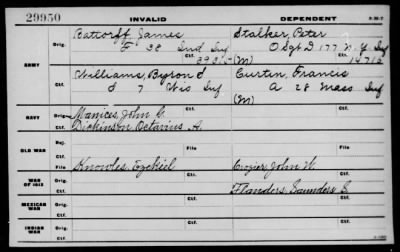 29950 INVALID DEPENDENT
Battorff, James Stalker, Peter
Orig. F 38 Ind Inf O Sgt D 177 N.Y. Inf
ARMY (M)
Ctf. Williams, Byron d Ctf. Curtin, Francis
d 7 Wis Inf A 28 Mass Inf
(M)
NAVY Orig. Manices, John C.
Ctf. Dickinson Octavius A.
OLD WAR File
Ctf.
WAR OF 1812 File Knowles, Ezekiel File Crozier, John W.
Ctf. Ctf. Flanders, Saunders S
MEXICAN WAR Orig.
Ctf.
INDIAN WAR Orig.
Ctf.